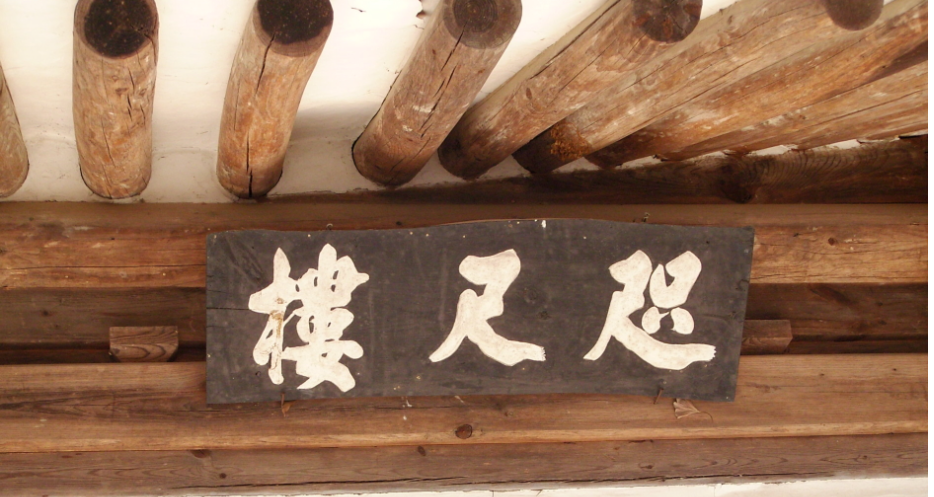 咫尺樓